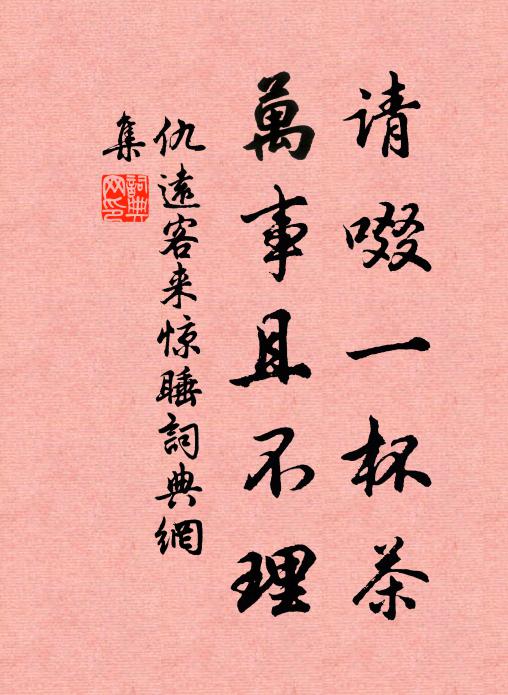 请啜一杯茶
萬事且不理
仇遠客来惊睡詞典網
集
詞典
网印